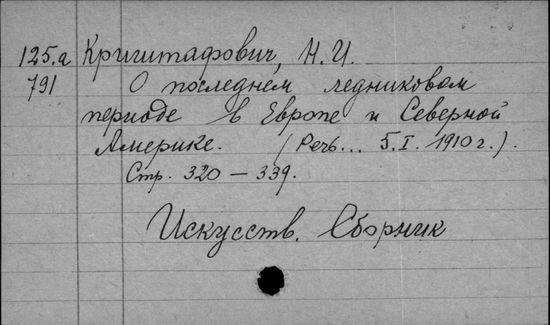 125.a Криштафович, Н.И.
791 О последнем ледниковом
периоде в Европе и Северной
Америке. (Речь... 5.I.1910 г.).
Стр. 320 — 339.
Искусств. Сборник